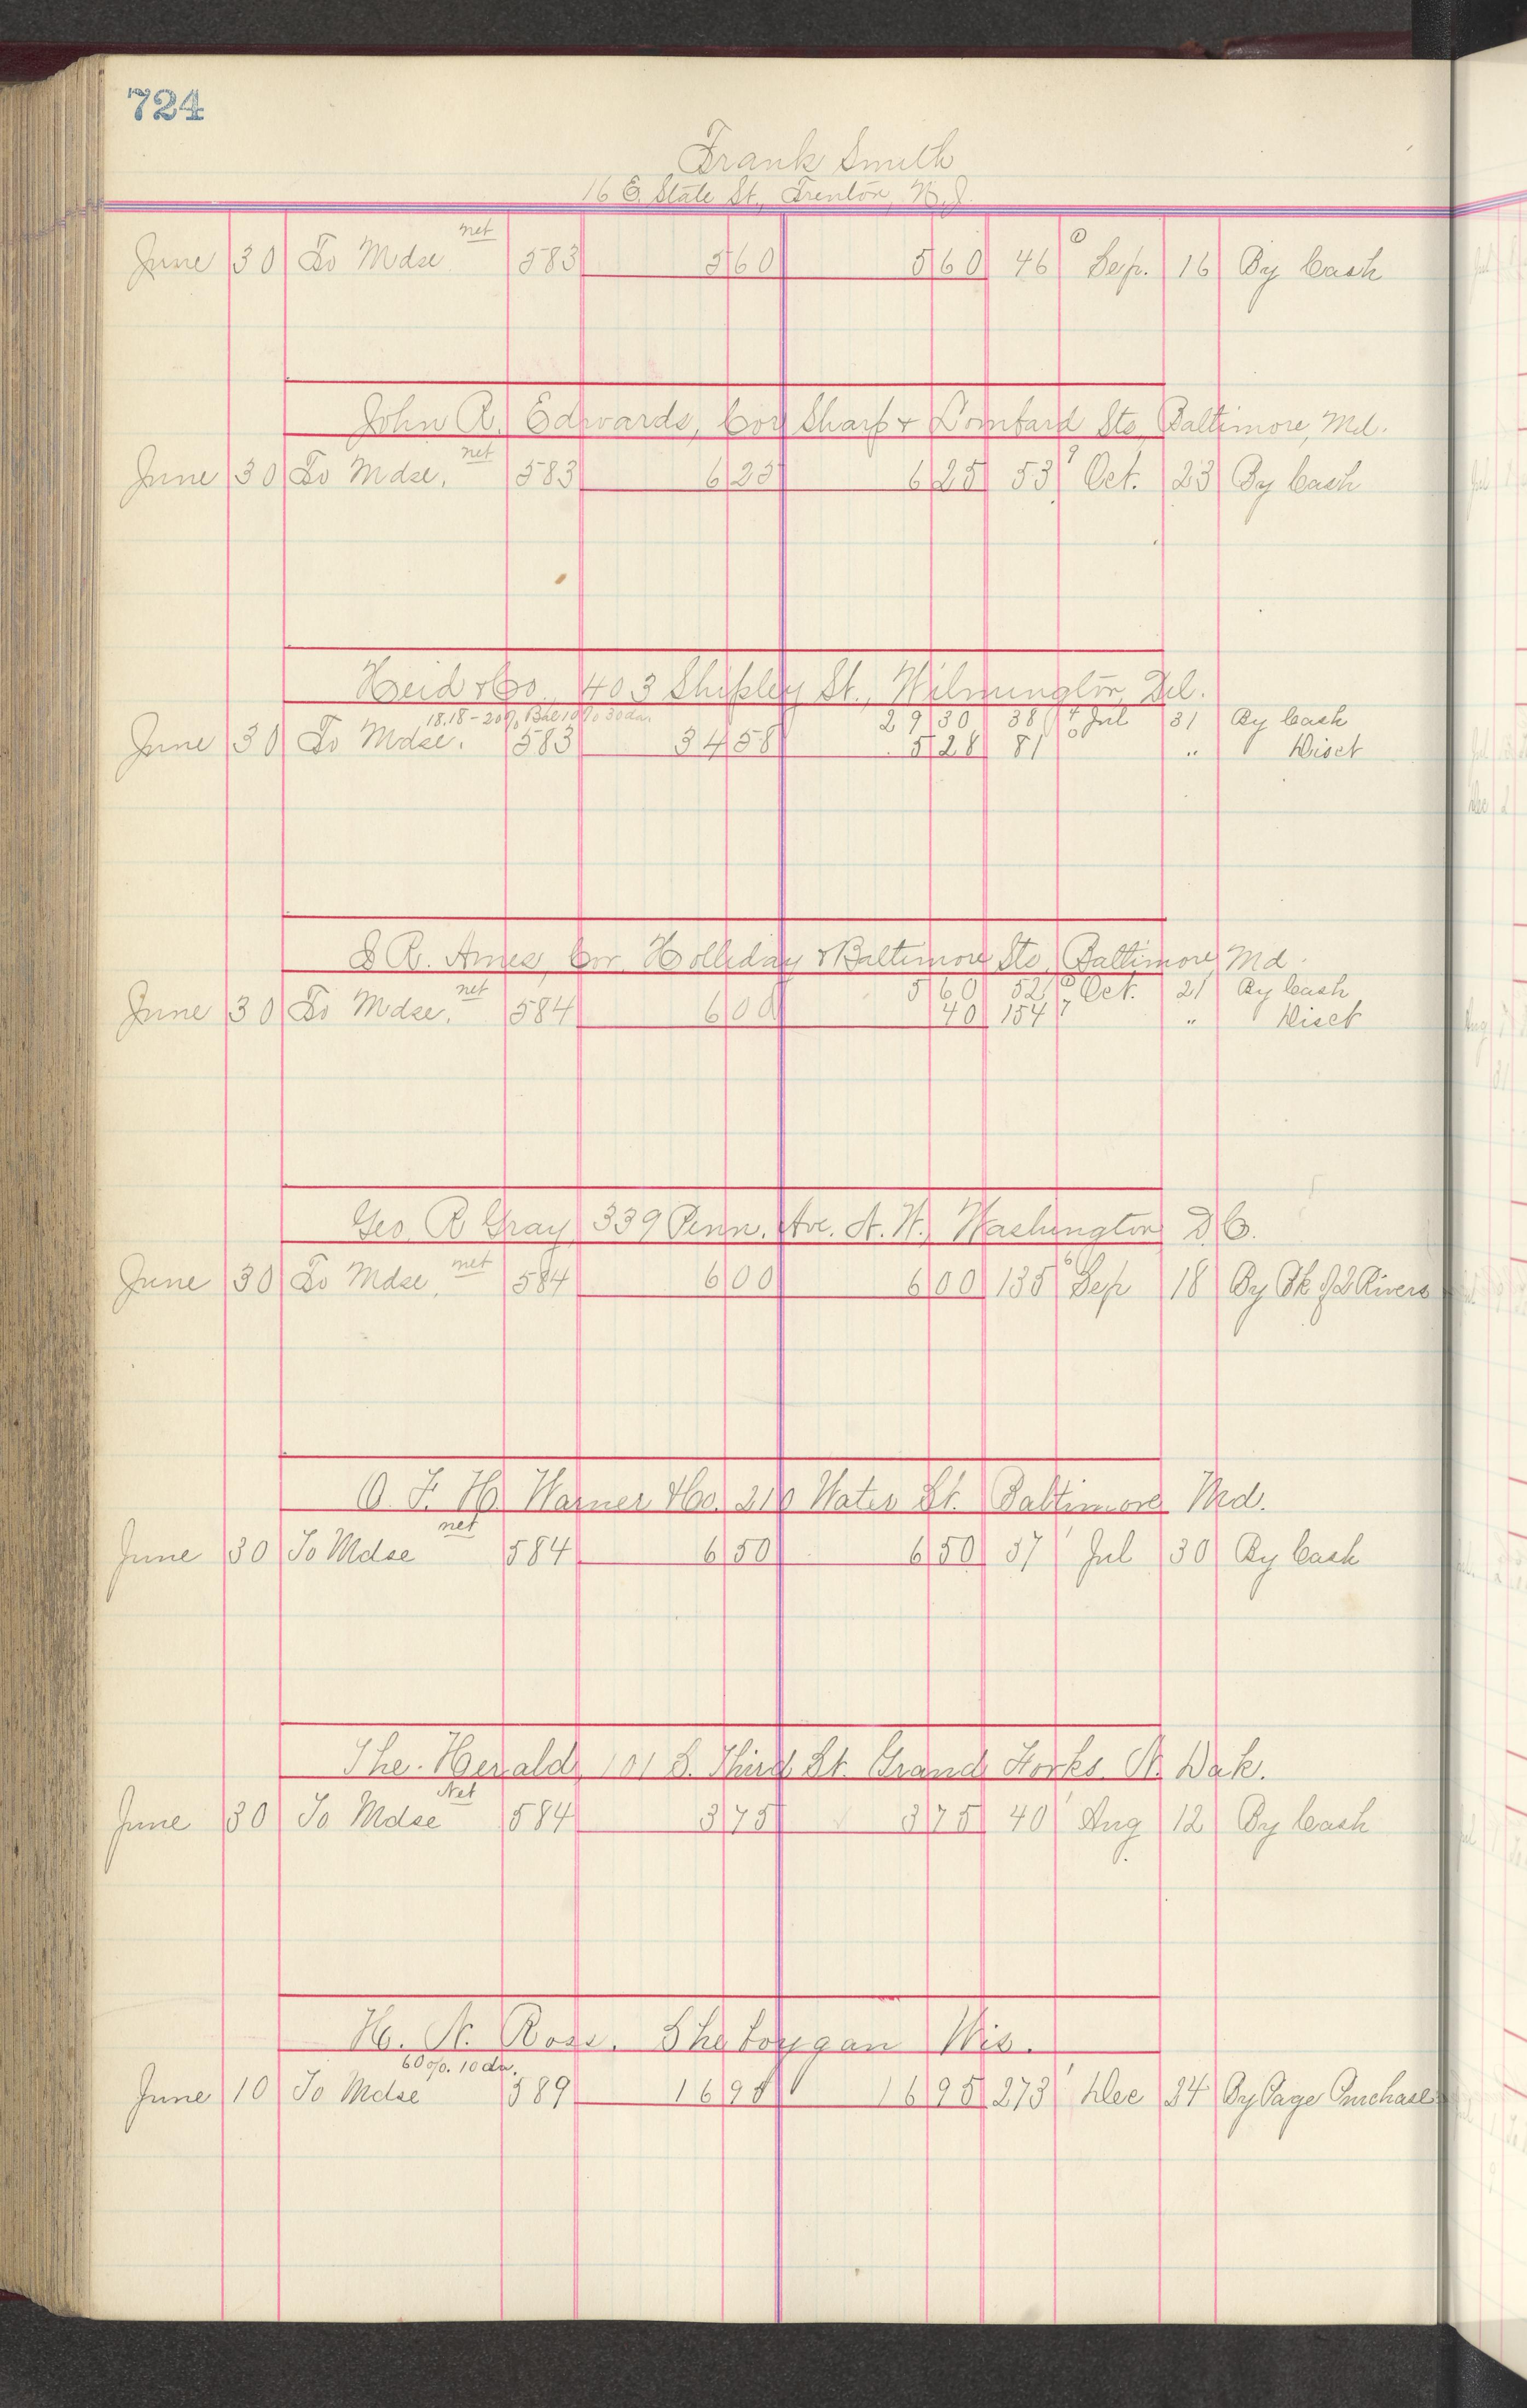 724
Frank Smith
16 E. State St., Trenton, N.J.
net
June 30 To Mdse 583 5 60 5 60 46 Sep. 16 By Cash
John R. Edwards, Cor Sharp & Lombard Sts Baltimore, Md.
net
June 30 To Mdse. 583 6 25 6 25 53 Oct. 23 By Cash
Heid & Co. 403 Shipley St., Wilmington, Del.
18.18 - 20%, Bal 10% 30 da. 29 30 38 Jul 31 By Cash
June 30 To Mdse. 583 34 58 5 28 81 " Disct
R. Ames, Cor. Holliday & Baltimore Sts, Baltimore Md.
net 5 60 52 Oct. 21 By Cash
June 30 To Mdse. 584 6 00 40 154 " Disct
Geo. R Gray 339 Penn. Ave. N. W. Washington D.C.
net
June 30 To Mdse. 584 6 00 6 00 135 Sep 18 By Bk Rivers
O. F. H. Warner & Co. 210 Water St. Baltimore Md.
net
June 30 To Mdse 584 6 50 6 50 37 Jul 30 By Cash
The Herald, 101 S. Third St. Grand Forks N. Dak.
Net
June 30 To Mdse 584 3 75 3 75 40 Aug 12 By Cash
H. N. Ross. Sheboygan Wis.
60%. 10 da.
June 10 To Mdse 589 16 95 16 95 273 Dec 24 By Page Purchase